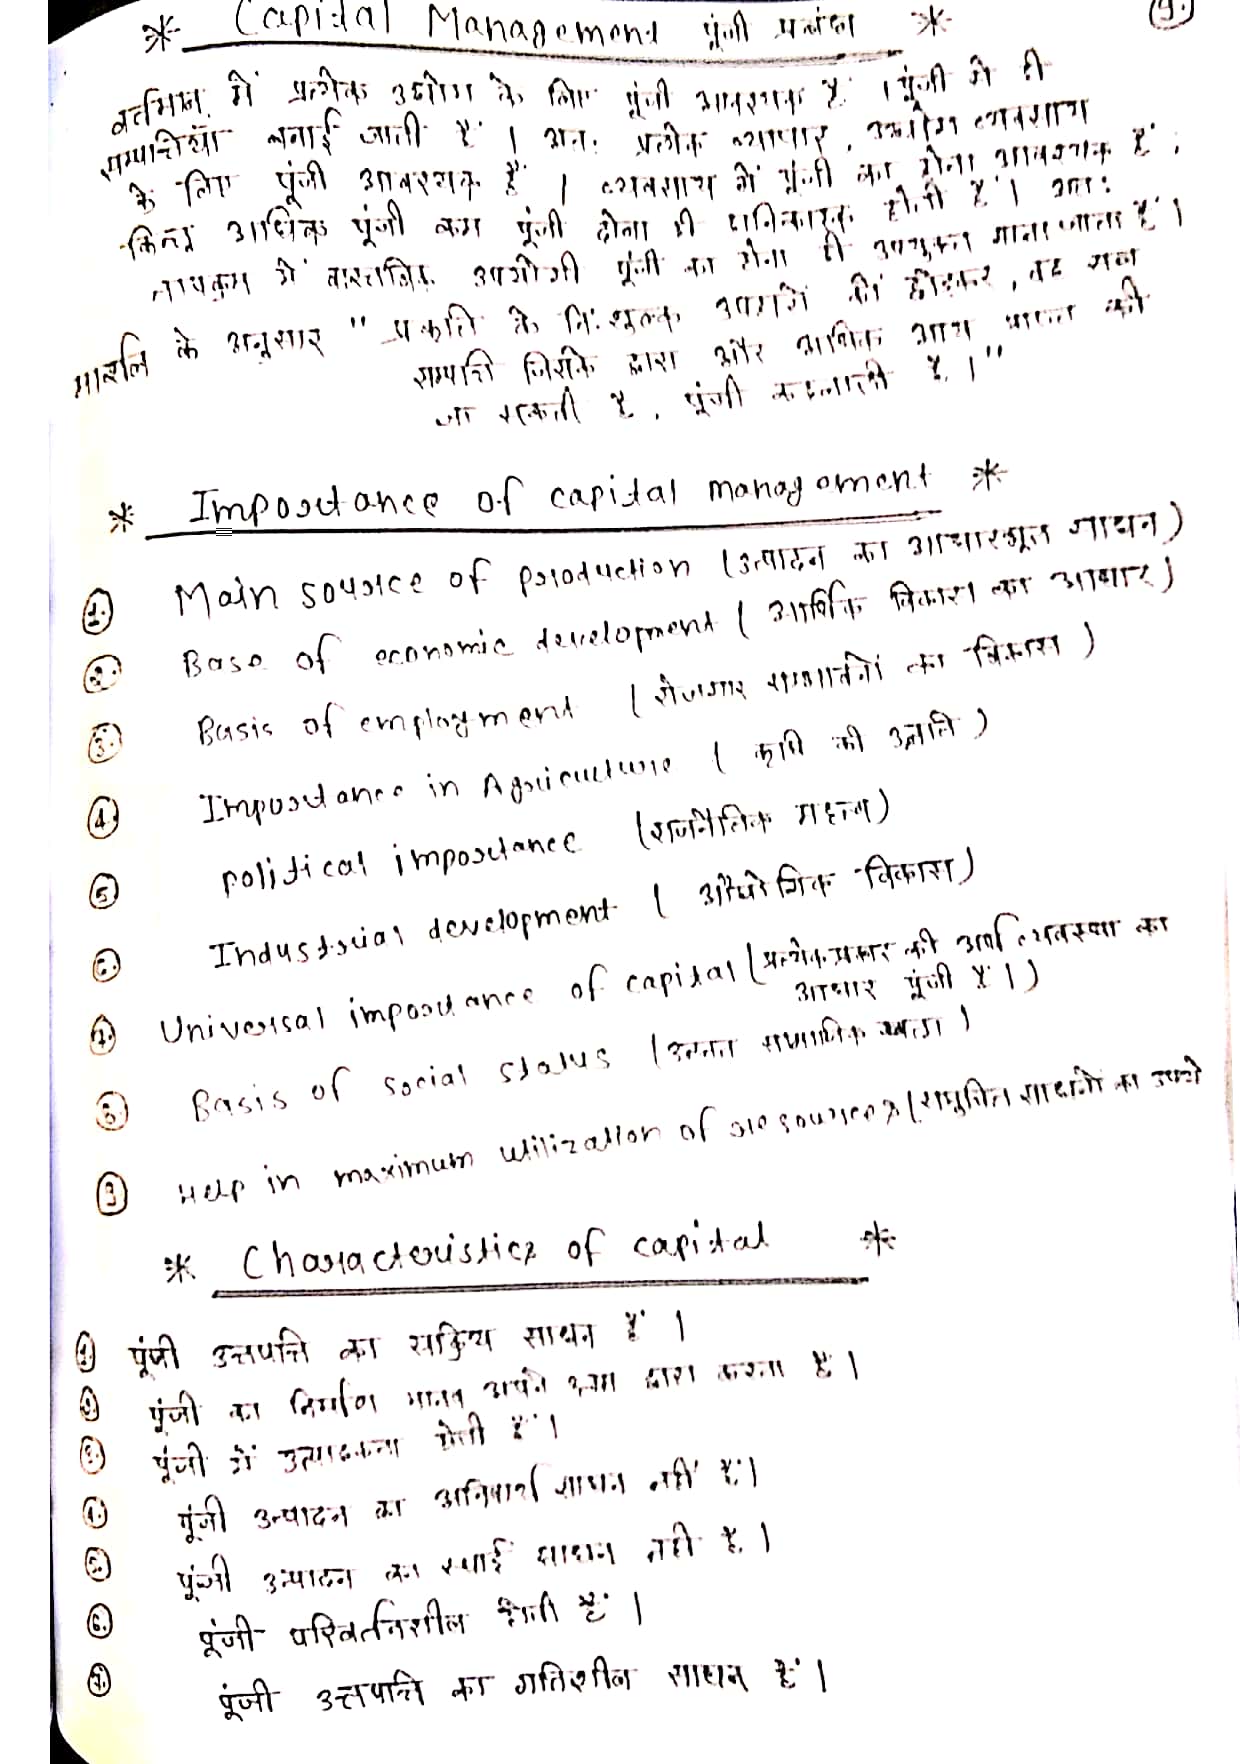 9.
* Capital Management पूंजी प्रबंधन *
वर्तमान में प्रत्येक उद्योग के लिए पूंजी आवश्यक हैं । पूंजी से ही
सम्पत्तियाँ बनाई जाती हैं । अतः प्रत्येक व्यापार, उद्योग व्यवसाय
के लिए पूंजी आवश्यक हैं । व्यवसाय में पूंजी का होना आवश्यक हैं,
किन्तु अधिक पूंजी कम पूंजी दोनो ही हानिकारक होती हैं । अतः
में वास्तविक उपयोगी पूंजी का होना ही उपयुक्त माना जाता हैं ।
मार्शल के अनुसार " प्रकृति के निःशुल्क उपहारों को छोड़कर, वह सब
सम्पत्ति जिसके द्वारा और अधिक आय प्राप्त की
जा सकती है, पूंजी कहलाती है । "
* Importance of capital management *
1. Main source of production (उत्पादन का आधारभूत साधन)
2. Base of economic development ( आर्थिक विकास का आधार)
3. Basis of employment ( रोजगार सम्भावनों का विकास )
4. Importance in Agriculture ( कृषि की उन्नति )
5 political importance (राजनैतिक महत्व)
6. Industrial development ( औद्योगिक विकास)
7. Universal importance of capital (प्रत्येक प्रकार की अर्थव्यवस्था का
आधार पूंजी हैं ।)
8. Basis of social status (उन्नत सामाजिक )
9 Help in maximum utilization of resources (समुचित साधनों का उपयो
* Characteristics of capital *
1. पूंजी उत्तपत्ति का सक्रिय साधन हैं ।
2. पूंजी का निर्माण मानव अपने श्रम द्वारा करता हैं ।
3. पूंजी में उत्पादकता होती हैं ।
4. पूंजी उत्पादन का अनिवार्य साधन नहीं हैं ।
5. पूंजी उत्पादन का स्थाई साधन नही हैं ।
6. पूंजी परिवर्तनशील होती हैं ।
7. पूंजी उत्तपत्ति का गतिशील साधन हैं ।